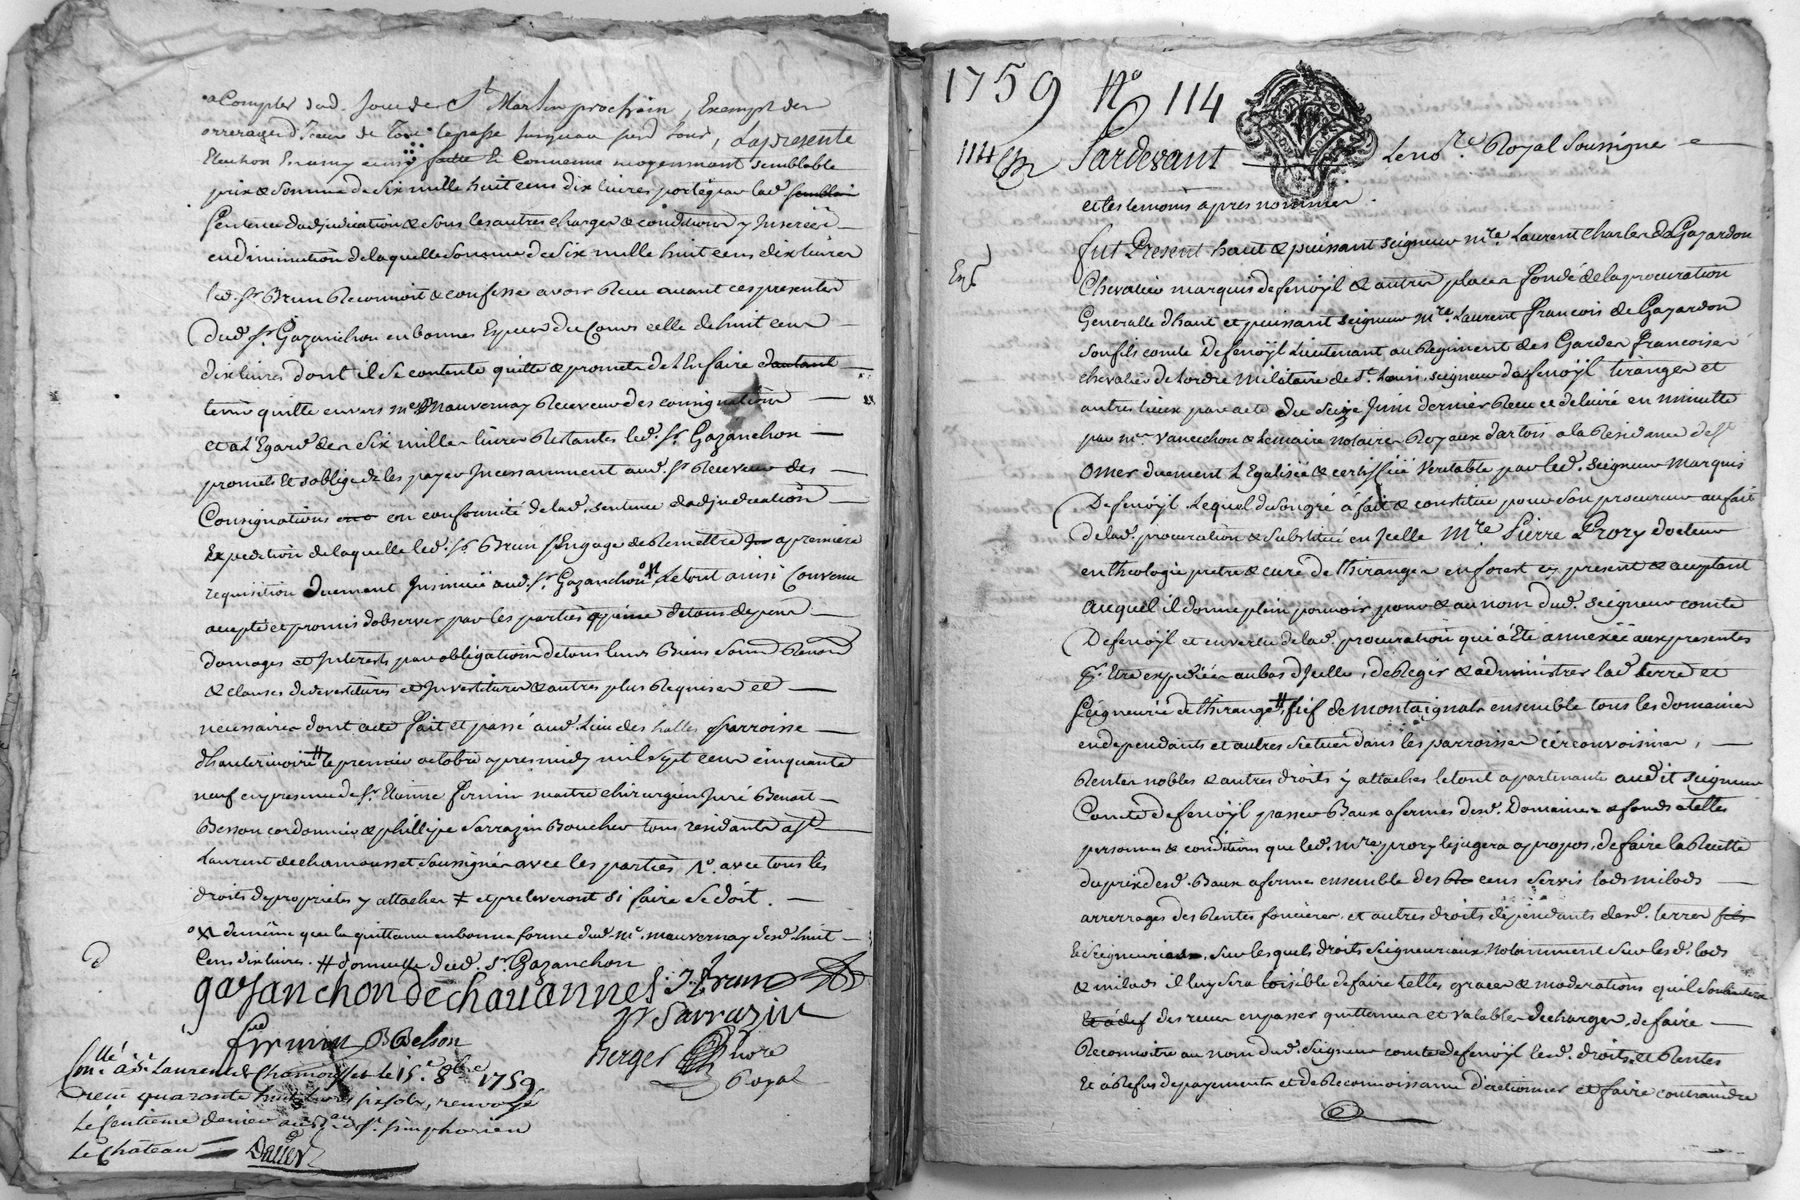 a Compter dud. Jour de St Martin prochain, Exempt des
arrerages d'Iceux de tout le passé jusqu'au susd Jour, La presente
Election En amy ainsi faitte Et Convenue moyennant semblable
prix & Somme de Six mille huit cens dix Livres porté par lad. semblab
Sentence dadjudication & Sous les autres charges & conditions y Inserées
en diminution de laquelle Somme de Six mille huit cens dix livres
led. Sr. Brun Reconnoit & confesse avoir Reçu avant ces presentes
Dud. Sr. Gazanchon en bonnes Especes du Cours celle de huit cens
dix livres dont il Se contente quitte & promet de l'En faire dautant
tenir quitte envers me Mauvernay Receveur des consignations
et a L'Egard des Six milles livres Restantes led. Sr. Gazanchon
promet Et s'oblige de les payer Incessamment aud. Sr Receveur des
Consignations en conformité de lad. Sentence dadjudication
Expedition de laquelle led. Sr. Brun s'Engage de Remettre a premiere
requisition Duement Insinuée aud. Sr. Gazanchon Le tout ainsi Convenu
accepté et promis dobserver par les parties a peine de tous depens
domages et Interests par obligation de tous leurs Biens Soumd Renond
& clauses de devestitures et Investitures & autres plus Requises et
necessaires dont acte fait et passé aud. Lieu des halles parroisse
dhauterivoire # le premier octobre apres midy mil Sept cens cinquante
neuf en presence de Sr. Etienne firmin maitre chirurgien Juré Benoit
Besson cordonnier & phillipe Sarrazin Boucher tous residants a St
Laurent de chamousset Soussignés avec les parties avec tous les
droits de proprietes y attachés ≠ et preleveront Si faire Se doit.
de même que la quittance en bonne forme dud. me. mauvernay desd. huit
Cens dix livres. # domicille dud. Sr Gazanchon
gazanchon de chauannes J. Brun
pr Sarrazin
firmin B Besson
Berger Nore
Royal
Conllé a St Laurent de Chamousset le 15e 8bre 1759
Reçu quarante huit livres renvoyé
Le Centieme denier au Bau. de St. Simphorien
Le Château
Daller
1759 No 114
114 Pardevant Le nore Royal Soussigne
et les temoins apres nommés.
fut Present haut & puissant seigneur mre. Laurent Charles De Gayardon
Chevalier marquis de fenoÿl & autres places fondé de la procuration
Generalle d'haut et puissant seigneur mre. Laurent francois de Gayardon
Son fils comte De fenoÿl Lieutenant au Regiment des Gardes francoises
chevalier de lordre Militaire de St. Louis, seigneur de fenoÿl tiranges et
autres lieux par acte du Seize Juin dernier Reçu et delivré en minutte
par me. vancechon & Lemaire notaires Royaux d'artois a la Residence de St
Omer duement L'Egalisée & certiffiée Veritable par led. Seigneur Marquis
De fenoÿl Lequel de Son gré à fait & constitué pour Son procureur au fait
de lad. procuration & Substitué en Icelle Mre Pierre Prory docteur
en theologie pretre & curé de thiranges en forest cy present & aceptant
auquel il donne plein pouvoir, pour & au nom dud. Seigneur comte
De fenoÿl et en vertu de lad. procuration qui à Eté annexée aux presentes
pr. Etre expediée au bas d'Icelle, de Regir & administrer lad terre et
Seigneurie de thirange # fief de montaignac ensemble tous les domaines
en dependants et autres Scituer dans les parroisses circonvoisines,
Rentes nobles & autres droits y attachés le tout apartenants audit seigneur
Comte De fenoÿl passer Baux a fermes desd. Domaines & fonds atelles
personnes & conditions que led. Mre prory le jugera apropos, de faire la Recette
du prix desd. Baux a fermes ensemble des cens Servis lods milods
arrerrages des Rentes foncieres et autres droits dépendants desd. terres
& Seigneuries, Sur lesquels droits Seigneuriaux Notamment Sur lesd. lods
& milods il luy Sera loisible de faire telles graces & moderations quil Souhaitera
des reçus en passer quittances et valables decharges, de faire
Reconnoitre au nom dud. Seigneur comte de fenoÿl lesd. droits, et Rentes
Et à Refus de payements et de Reconnoissance d'actionner et faire contraindre